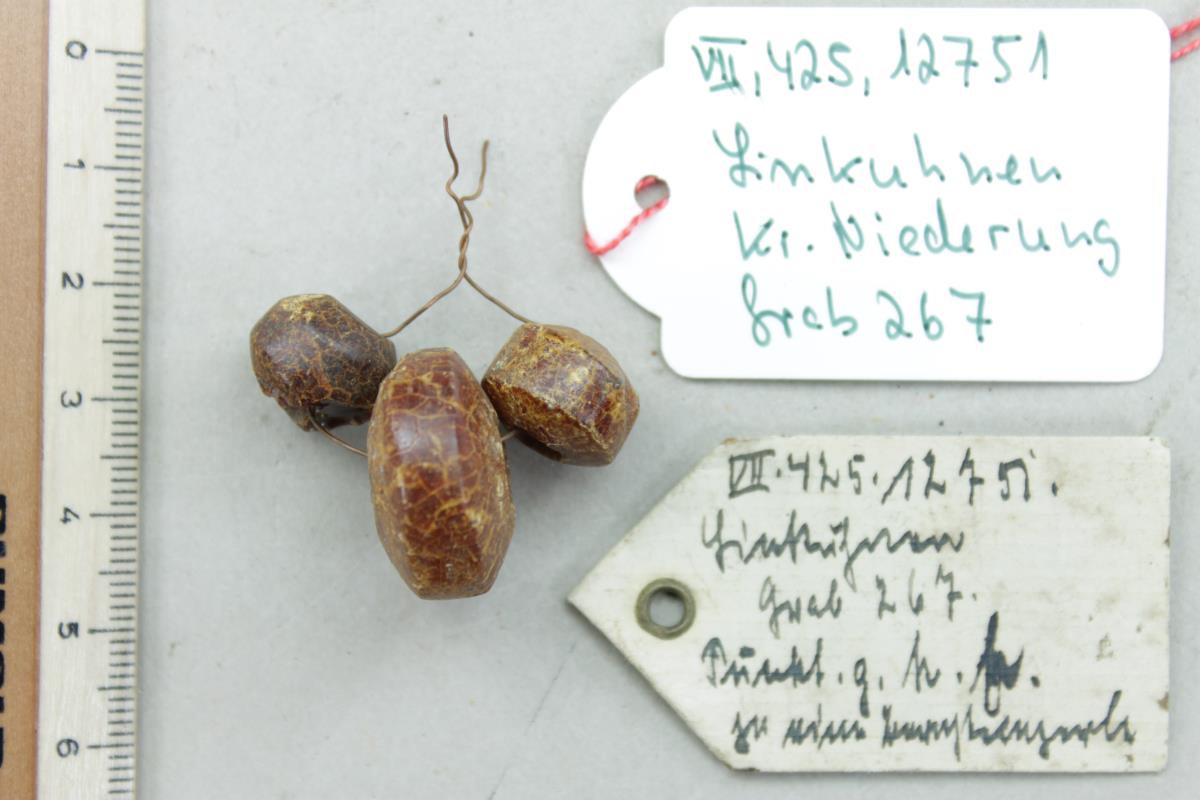 VII, 425, 12751
Linkuhnen
Kr. Niederung
Grab 267
VII. 425. 12751.
Linkuhnen
Grab 267.
Punkt. g. h.
je eine Bernsteinperle
0
1
2
3
4
5
6